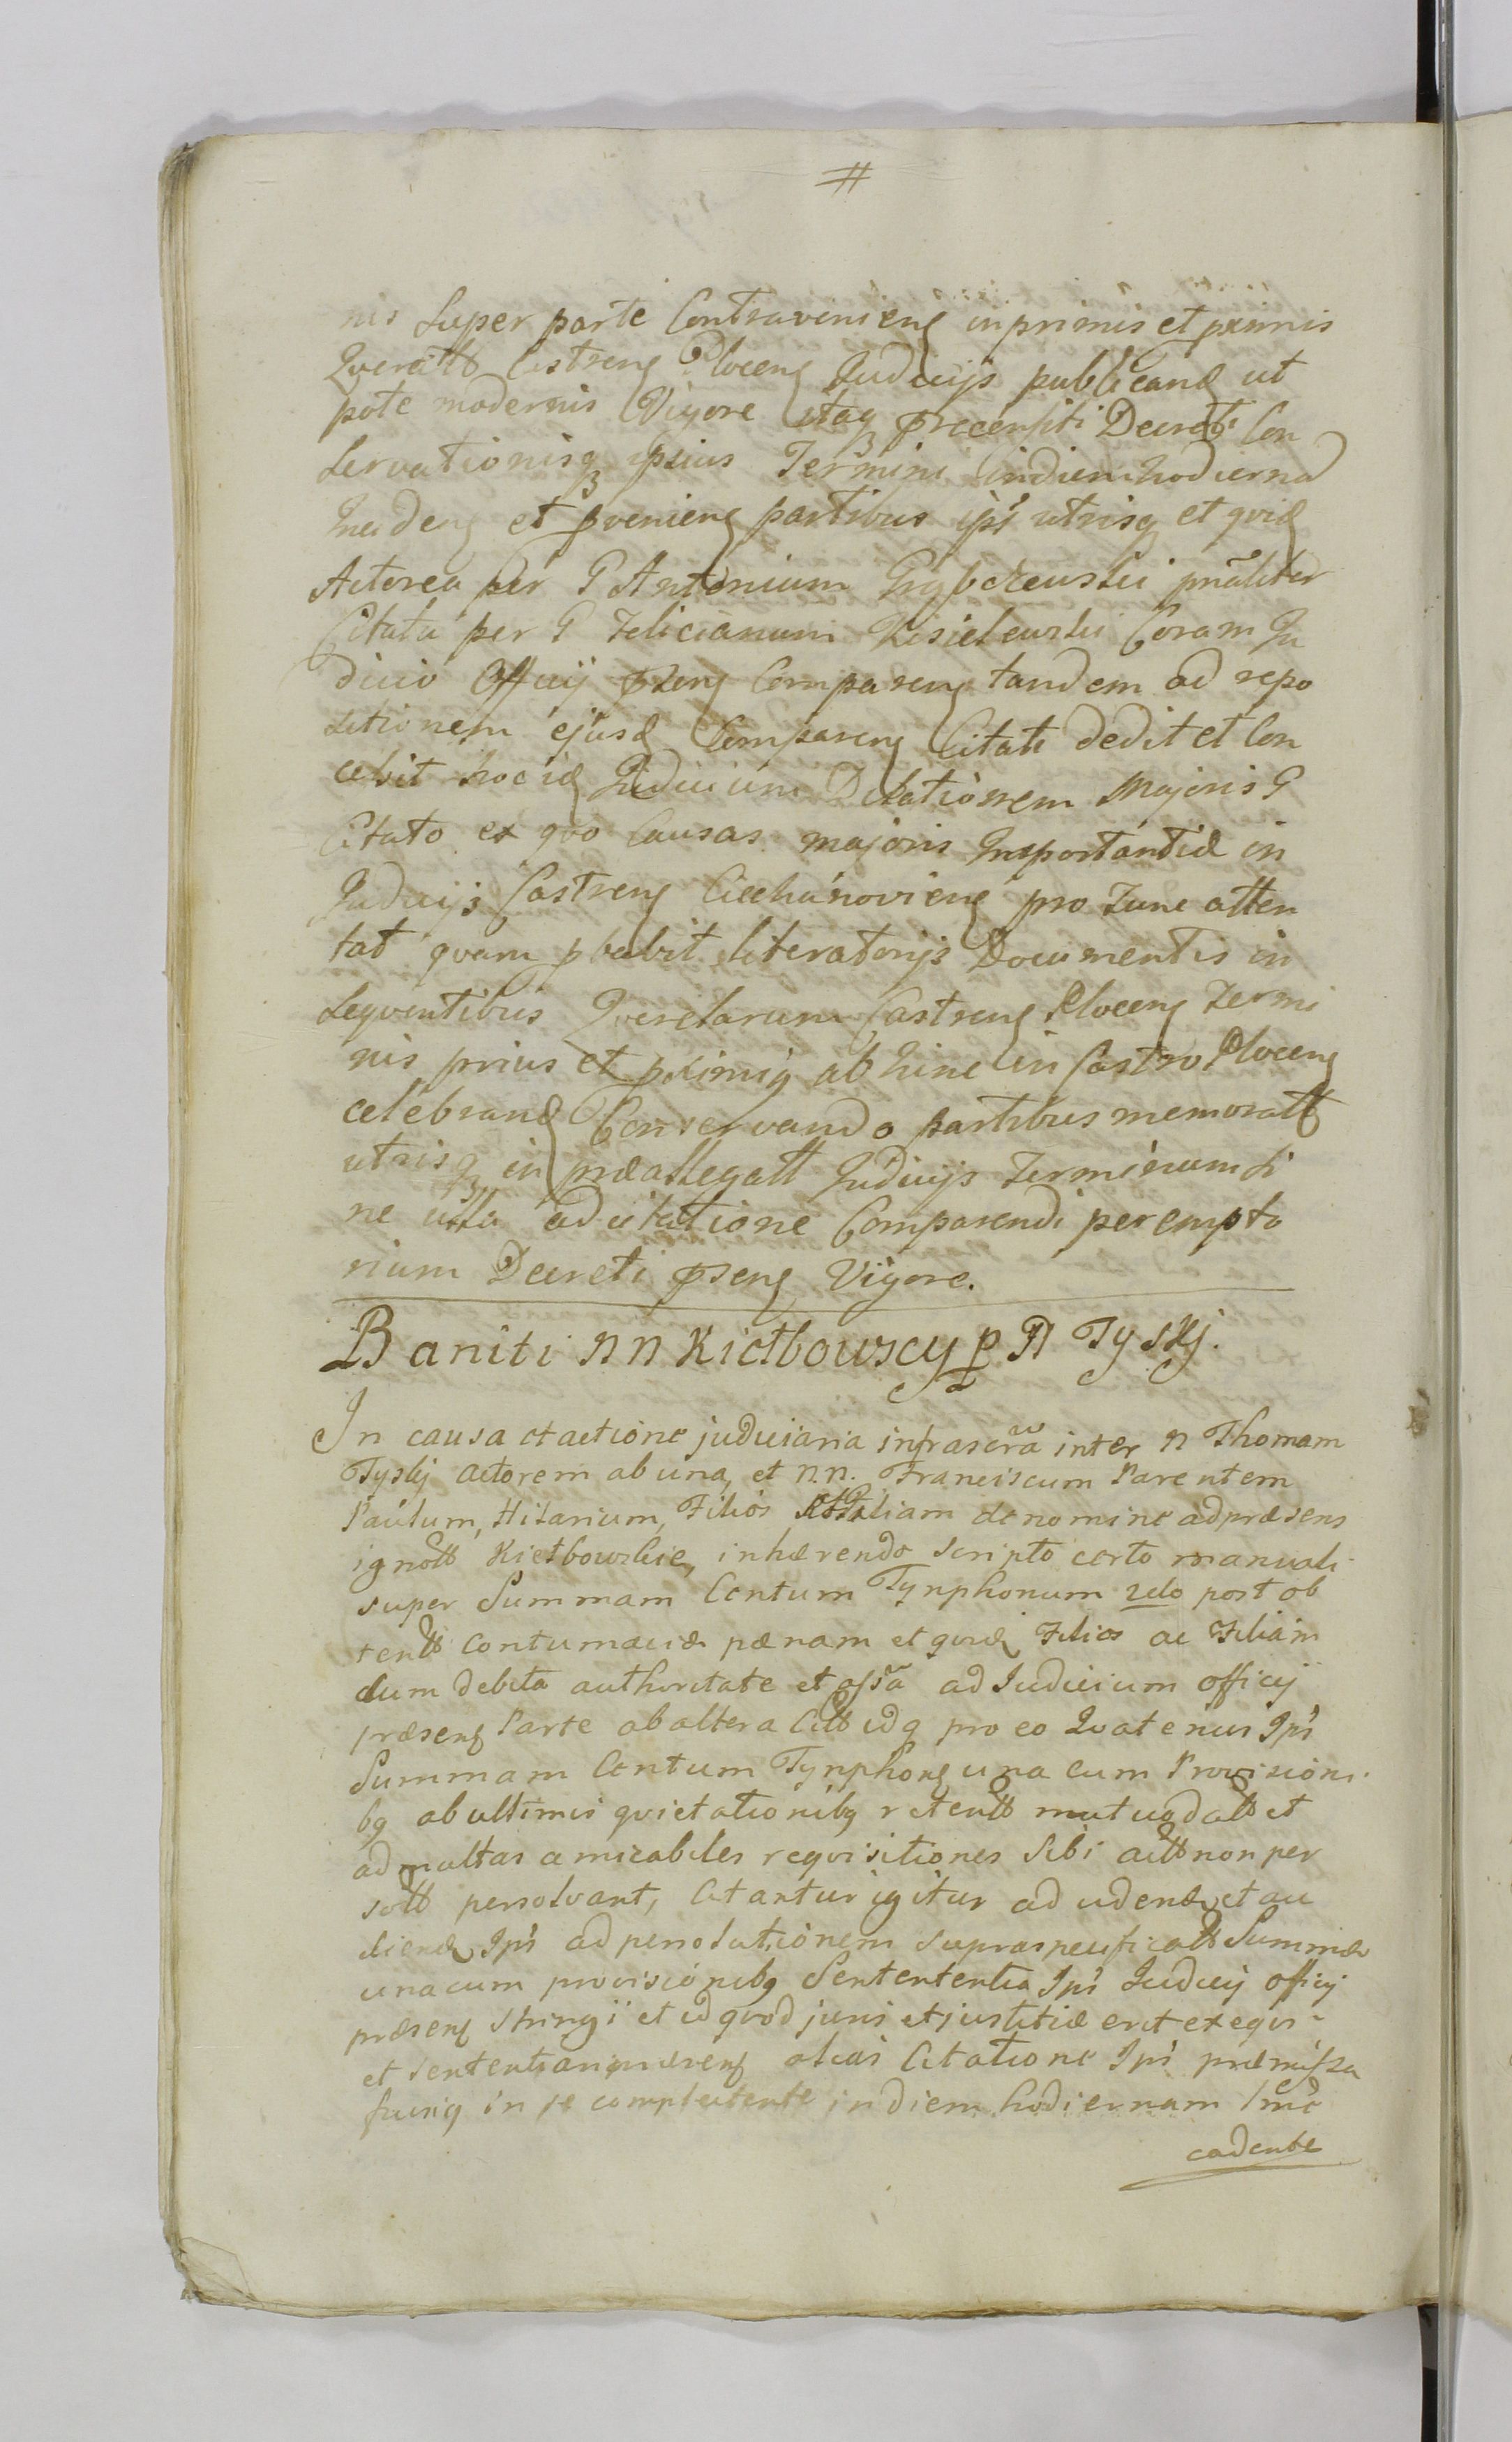 #
nis super parte Contravenien in primis et primis
Querell Castren Plocen Judicijs publicand ut
pote modernis Vigore itaq præcensiti Decreti Con
servationisq ipsius Termini in diem hodiernā
Incidenē et pvenien partibus ips utrisq et quid
Actorea per G Antonium pnaliter
Citata per G Felicianum Kisielewski Coram Ju
dicio Officij psen Comparen tandem ad repo
sitionem ejusd Comparen Citati dedit et Con
cessit hocid Judicium Dilationem Majoris G
Citato ex quo Causas majoris Importantiæ in
Judicijs Castren Ciechanovien pro Tunc atten
tat quam pbabit literatorijs Documentis in
sequentibus Querelarum Castren Plocen Termi
nis prius et pximiq ab hinc in Castro Plocen
celebrand Conservando partibus memoratt
utrisq in præallegatt Judicijs Terminum si
ne ulla adcitatione Comparendi perempto
rium Decreti psen Vigore.
Baniti n n Kiełbowscy p n Tyskj.
In causa et actione judiciaria infrascra inter n Thomam
Tyskj actorem ab una, et n.n. Franciscum Parentem
Paulum, Hilarium, Filios et Filiam de nomine ad præsens
ignott Kiełbowskie, inhærendo scripto certo manuali
super Summam Centum Tynphonum 2do post ob
tentt contumaciæ pænam et quid Filios ac Filiam
cum debita authoritate et assa ad Judicium officij
præsen Parte ab altera Citt idq pro eo Quatenus Ips
Summam Centum Tynphon una cum Provisioni
bq ab ultimis quietationibq retentt mutuo datt et
ad multas amicabiles requisitiones sibi actt non per
solt persolvant, Citantur igitur ad udend et au
diend Ips ad persolutionem supraspecificatt Summæ
una cum provisionibq Sententertia Ips Judicij officij
præsen stringi et id quod juris et justitiæ erit ex eqis
et sententiam præsen alias Citatione Ips præmissa
fusiq in se complectente in diem hodiernam Imē
cadente